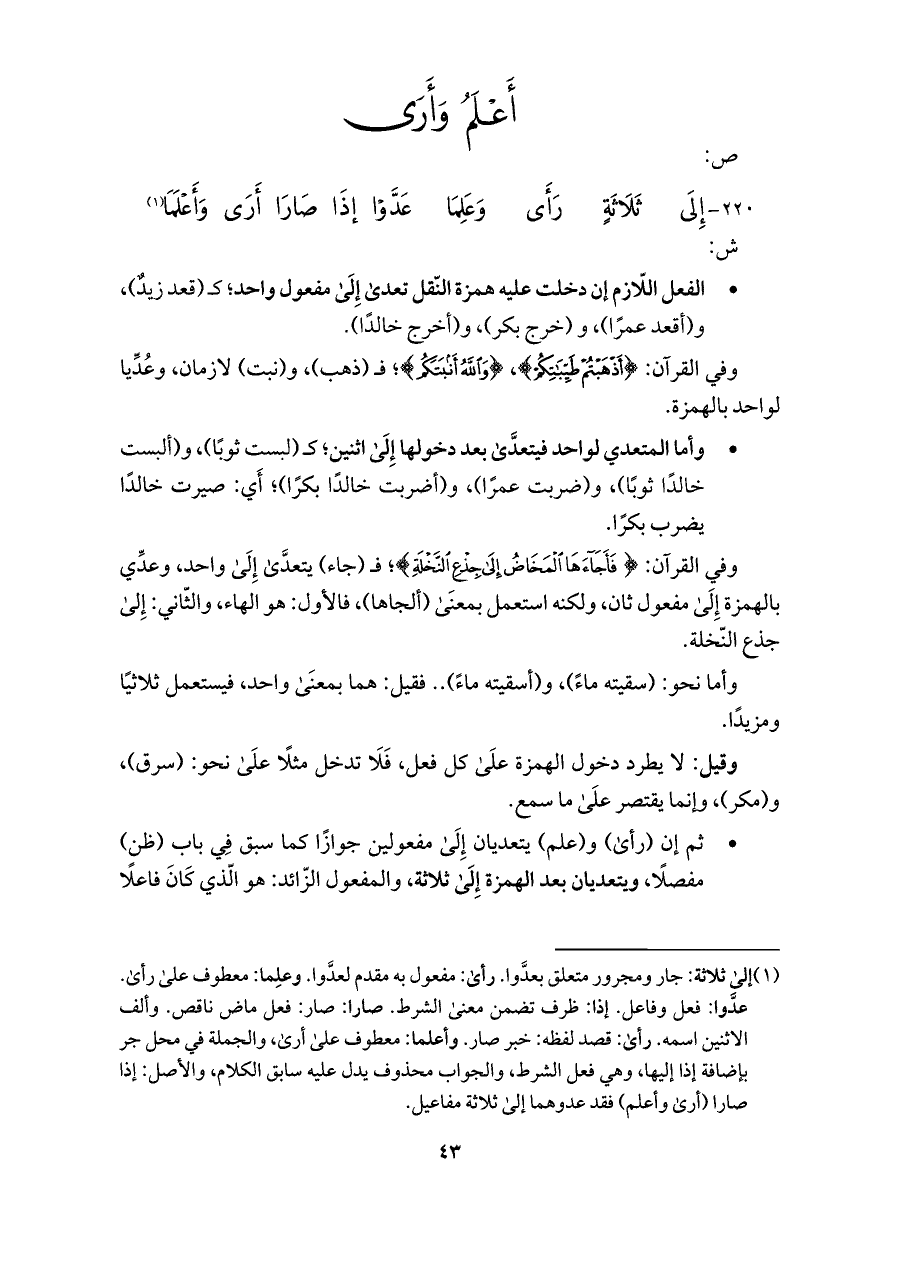 أَعْلَمُ وَأَرَى
ص:
٢٢٠-إِلَى ثَلَاثَةٍ رَأَى وَعَلِمَا عَدَّوْا إِذَا صَارَا أَرَى وَأَعْلَمَا(١)
ش:
• الفعل اللّازم إن دخلت عليه همزة النّقل تعدى إِلَىٰ مفعول واحد؛ كـ (قعد زيدٌ)،
و(أقعد عمرًا)، و (خرج بكر)، و(أخرج خالدًا).
وفي القرآن: ﴿أَذْهَبْتُمْ طَيِّبَٰتِكُمْ﴾، ﴿وَٱللَّهُ أَنۢبَتَكُم﴾؛ فـ (ذهب)، و(نبت) لازمان، وعُدِّيا
لواحد بالهمزة.
• وأما المتعدي لواحد فيتعدَّىٰ بعد دخولها إِلَىٰ اثنين؛ كـ (لبست ثوبًا)، و(ألبست
خالدًا ثوبًا)، و(ضربت عمرًا)، و(أضربت خالدًا بكرًا)؛ أَي: صيرت خالدًا
يضرب بكرًا.
وفي القرآن: ﴿ فَأَجَآءَهَا ٱلْمَخَاضُ إِلَىٰ جِذْعِ ٱلنَّخْلَةِ﴾؛ فـ (جاء) يتعدَّىٰ إِلَىٰ واحد، وعدِّي
بالهمزة إِلَىٰ مفعول ثان، ولكنه استعمل بمعنَىٰ (ألجاها)، فالأول: هو الهاء، والثّاني: إِلىٰ
جذع النّخلة.
وأما نحو: (سقيته ماءً)، و(أسقيته ماءً).. فقيل: هما بمعنَىٰ واحد، فيستعمل ثلاثيًا
ومزيدًا.
وقيل: لا يطرد دخول الهمزة علَىٰ كل فعل، فَلَا تدخل مثلًا علَىٰ نحو: (سرق)،
و(مكر)، وإنما يقتصر علَىٰ ما سمع.
• ثم إن (رأىٰ) و(علم) يتعديان إِلَىٰ مفعولين جوازًا كما سبق فِي باب (ظن)
مفصلًا، ويتعديان بعد الهمزة إِلَىٰ ثلاثة، والمفعول الزّائد: هو الّذي كَانَ فاعلًا
(١) إلىٰ ثلاثة: جار ومجرور متعلق بعدَّوا. رأىٰ: مفعول به مقدم لعدَّوا. وعلِما: معطوف علىٰ رأىٰ.
عدَّوا: فعل وفاعل. إذا: ظرف تضمن معنىٰ الشرط. صارا: صار: فعل ماض ناقص. وألف
الاثنين اسمه. رأىٰ: قصد لفظه: خبر صار. وأعلما: معطوف علىٰ أرىٰ، والجملة في محل جر
بإضافة إذا إليها، وهي فعل الشرط، والجواب محذوف يدل عليه سابق الكلام، والأصل: إذا
صارا (أرىٰ وأعلم) فقد عدوهما إلىٰ ثلاثة مفاعيل.
٤٣